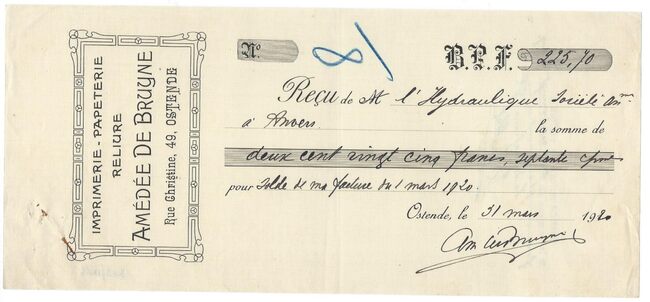 IMPRIMERIE - PAPETERIE
RELIURE
AMÉDÉE DE BRUYNE
Rue Christine, 49, OSTENDE
N° 81
B.P.F. 225,70
Reçu de M l'Hydraulique Société An.me
à Anvers la somme de
deux cent vingt cinq francs, septante
pour Solde de ma facture du 1 mars 1920.
Ostende, le 31 mars 1920
Am DeBruyne